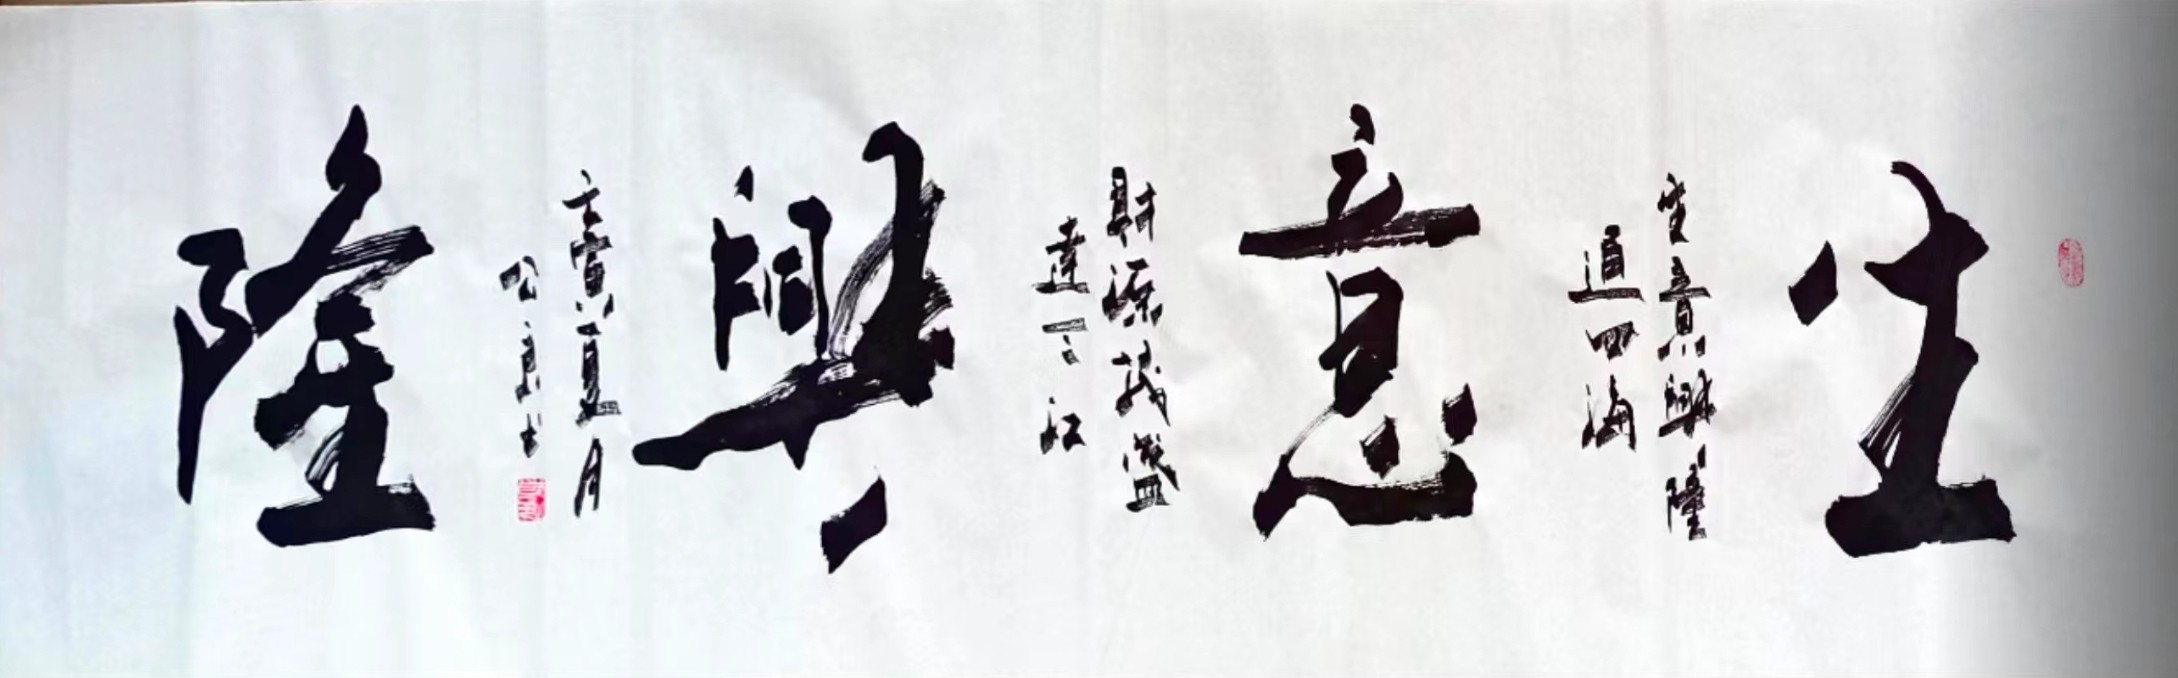 生意興隆
生意興隆
通四海
財源茂盛
達三江
壬寅夏月
公良书